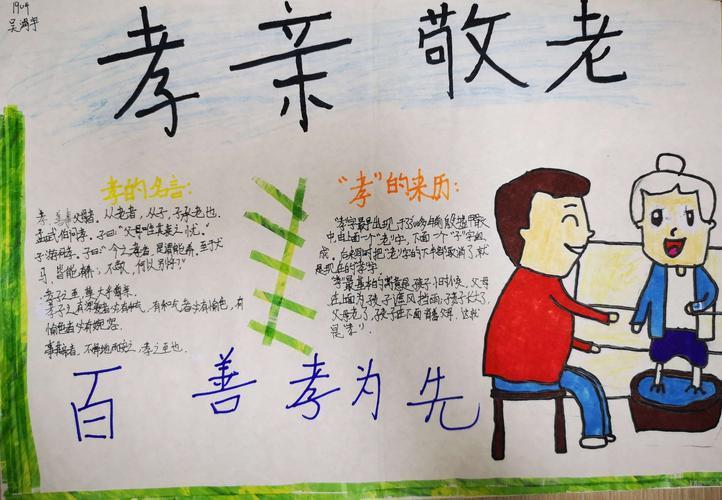 1904
吴鸿宇
孝亲敬老
孝的名言:
孝，善事父母者，从老省，从子，子承老也.
孟武伯问孝，子曰"父母唯其疾之忧."
子游问孝，子曰:"今之孝者，是谓能养.至于犬
马，皆能有养，不敬，何以别乎?"
孝子之至，莫大乎尊亲.
孝子之有深爱者必有和气，有和气者必有愉色，有
愉色者必有婉容.
事其亲者，不择地而安之，孝之至也.
"孝"的来历:
"孝"字最早出现于
中，由上面一个"老"字，下面一个"子"字组
成。后来
是现在的"孝"字
"孝"最基本的寓意是孩子小时候，父母
在上面为孩子遮风挡雨，孩子长大了，
父母老了，孩子在下面背父母，这就
是"孝"!
百善孝为先